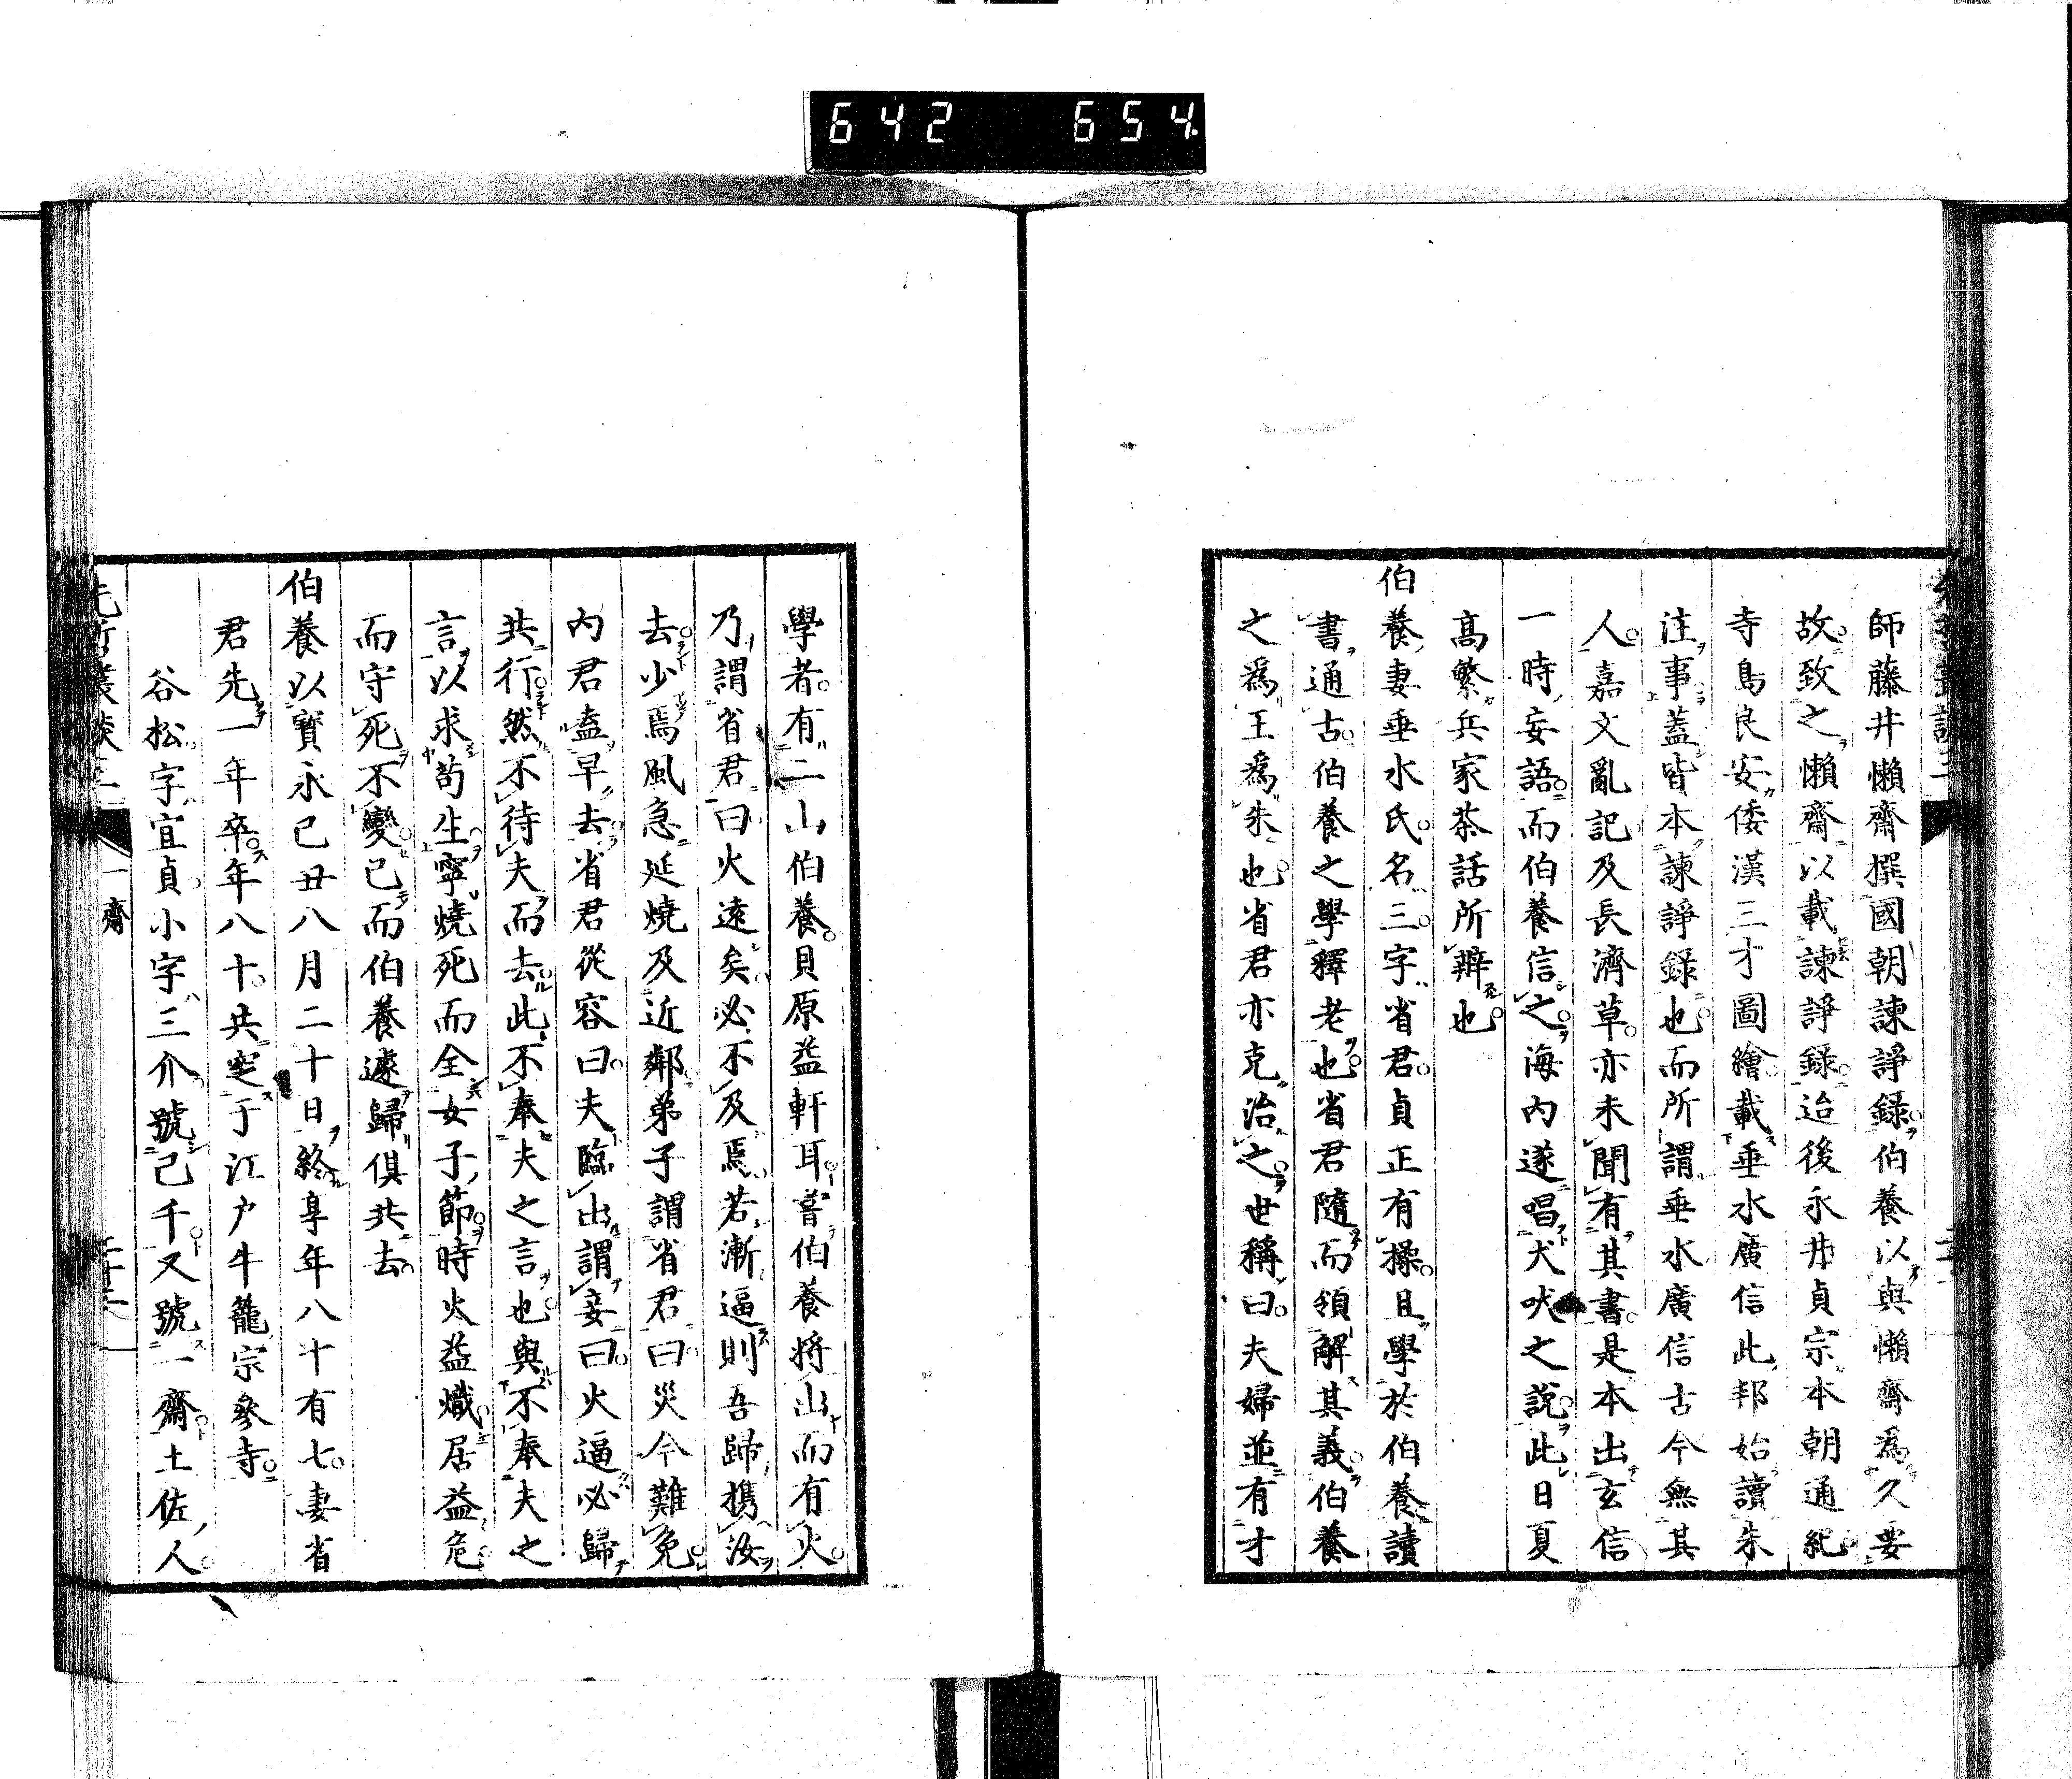 642 654
師藤井懶齋撰國朝諫諍録伯養以與懶齋爲久要
故致之懶齋以載諫諍録迨後永井貞宗本朝通紀
寺島良安倭漢三才圖繪載垂水廣信此邦始讀朱
注事蓋皆本諫諍録也而所謂垂水廣信古今無其
人嘉文亂記及長濟草亦未聞有其書是本出玄信
一時妄語而伯養信之海内遂唱犬吠之説此日夏
高繁兵家茶話所辨也
伯養妻垂水氏名三字省君貞正有操且學於伯養讀
書通古伯養之學釋老也省君隨而領解其義伯養
之爲王爲朱也省君亦克治之世稱曰夫婦並有才
學者有二山伯養貝原益軒耳嘗伯養將出而有火
乃謂省君曰火遠矣必不及焉若漸逼則吾歸携汝
去少焉風急延燒及近鄰弟子謂省君曰災今難免
内君盍早去省君從容曰夫臨出謂妾曰火逼必歸
共行然不待夫而去此不奉夫之言也與不奉夫之
言以求苟生寧燒死而全女子節時火益熾居益危
而守死不變已而伯養遽歸俱共去
伯養以寶永己丑八月二十日終享年八十有七妻省
君先一年卒年八十共窆于江戸牛籠宗參寺
谷松字宜貞小字三介號己千又號一齋土佐人
一齋